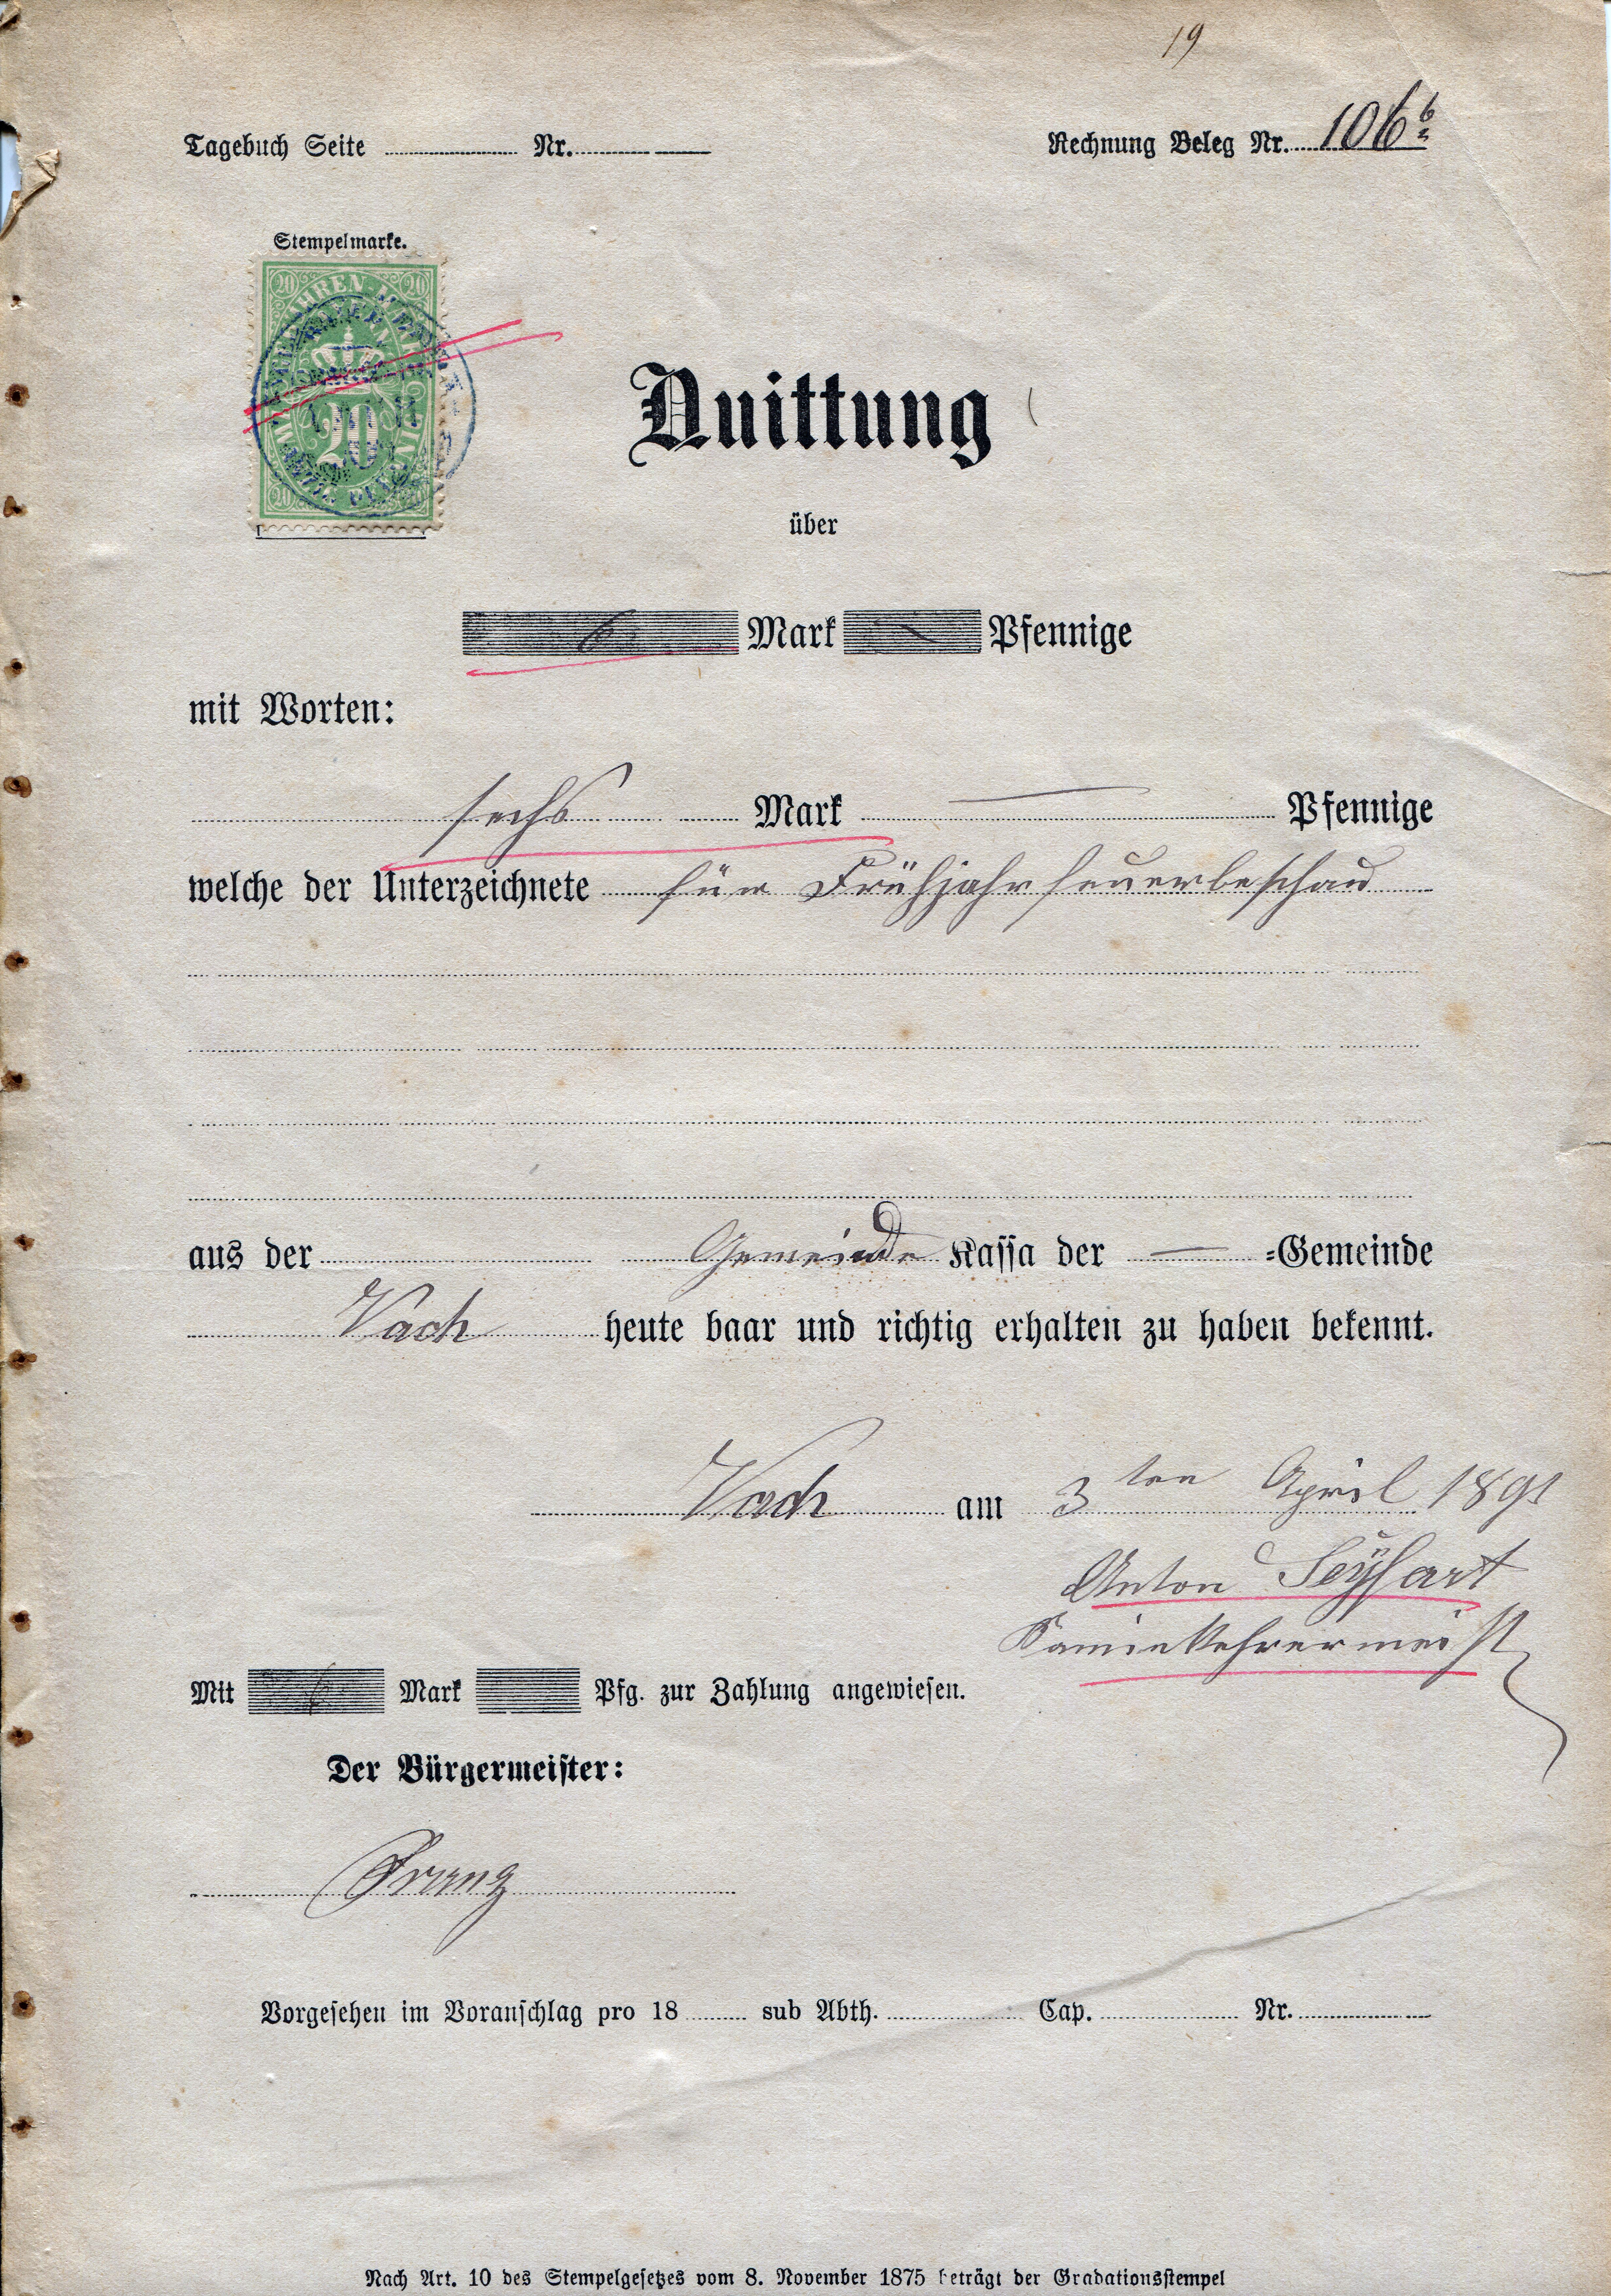 19
Tagebuch Seite Nr. Rechnung Beleg Nr. 106 b
Stempelmarke.
20 20
GEBÜHREN-MARKE
BAYERN
20
20
Quittung
über
6 Mark — Pfennige
mit Worten:
sechs Mark — Pfennige
welche der Unterzeichnete für Frühjahrfeuerbeschau
aus der Gemeinde Kassa der — =Gemeinde
Vach heute baar und richtig erhalten zu haben bekennt.
Vach am 3ten April 1891
Anton Seyfart
Kaminkehrermeist
Mit 6 Mark Pfg. zur Zahlung angewiesen.
Der Bürgermeister:
Vorgesehen im Voranschlag pro 18 sub Abth. Cap. Nr.
Nach Art. 10 des Stempelgesetzes vom 8. November 1875 beträgt der Gradationsstempel